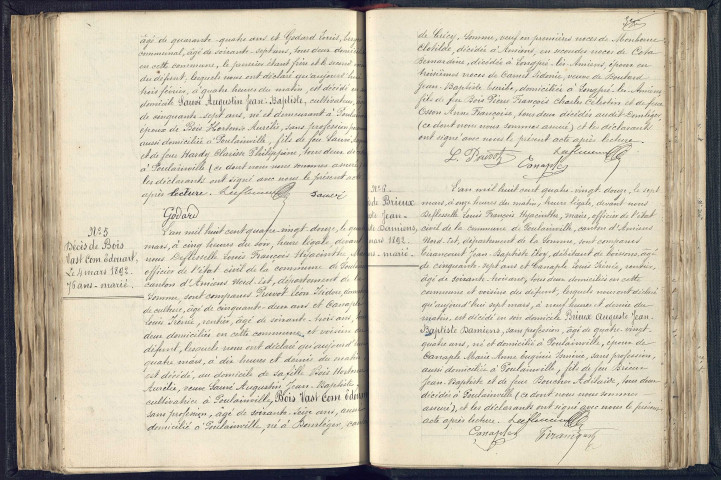 âgé de quarante-quatre ans et Godard Louis, berger
communal, âgé de soixante-sept ans, tous deux domiciliés
en cette commune, le premier étant frère et le second
du défunt, lesquels nous ont déclaré qu'aujourd'hui
trois février, à quatre heures du matin, est décédé en
domicile Sauré Augustin Jean-Baptiste, cultivateur,
de cinquante-sept ans, né et demeurant à Poulainville
époux de Bois Hortense Aurélie, sans profession,
aussi domiciliée à Poulainville, fils de feu Sauré
et de feue Hardy Clarisse Philippine, tous deux décédés
à Poulainville (ce dont nous nous sommes assuré)
les déclarants ont signé avec nous le présent acte
après lecture. Sauré
Godard
N° 5
Décès de Bois
Vast Com Edouart,
Le 4 mars 1892.
76 ans - marié.
L'an mil huit cent quatre-vingt-douze, le quatre
mars, à cinq heures du soir, heure légale, devant
nous Deflesselle Louis François Hyacinthe, maire
officier de l'état civil de la commune de Poulainville
canton d'Amiens Nord-Est, département de la
Somme, sont comparus Prévot Léon
de culture, âgé de cinquante-deux ans et Canaple
Louis Irénée, rentier, âgé de soixante-trois ans, tous
deux domiciliés en cette commune et voisins du
défunt, lesquels nous ont déclaré qu'aujourd'hui
quatre mars, à dix heures et demie du matin
est décédé, au domicile de sa fille Bois Hortense
Aurélie, veuve Sauré Augustin Jean-Baptiste
cultivatrice à Poulainville, Bois Vast Com Edouart
sans profession, âgé de soixante-seize ans,
domicilié à Poulainville, né à Domléger,
de Crécy, Somme, veuf en premières noces de
Clotilde, décédée à Amiens, en secondes noces de
Bernardine, décédée à Longpré-lès-Amiens, époux en
troisièmes noces de Sidonie, veuve de
Jean-Baptiste domiciliée à Longpré-les-Amiens,
fils de feu Bois Pierre François Charles Célestin et de feue
Cosson Anne Françoise, tous deux décédés audit Domléger
(ce dont nous nous sommes assuré) et les déclarants
ont signé avec nous le présent acte après lecture.
L. Prévot
Canaple
N° 6
de Brieux
de Jean-
de Damiens,
mars 1892.
ans - marié.
L'an mil huit cent quatre-vingt-douze, le sept
mars, à onze heures du matin, heure légale, devant nous
Deflesselle Louis François Hyacinthe, maire, officier de l'état
civil de la commune de Poulainville, canton d'Amiens
Nord-Est, département de la Somme, sont comparus
Jean-Baptiste Eloy, débitant de boissons, âgé
de cinquante-sept ans et Canaple Louis Irénée, rentier,
âgé de soixante-trois ans, tous deux domiciliés en cette
commune et voisins du défunt, lesquels nous ont déclaré
qu'aujourd'hui sept mars, à neuf heures et demie du
matin, est décédé en son domicile Brieux Auguste Jean-
Baptiste Damiens, sans profession, âgé de quatre-vingt-
quatre ans, né et domicilié à Poulainville, époux de
Canaple Marie Anne Eugénie sans profession,
aussi domiciliée à Poulainville, fils de feu Brieux
Jean-Baptiste et de feue Boucher Adélaïde, tous deux
décédés à Poulainville (ce dont nous nous sommes
assuré), et les déclarants ont signé avec nous le présent
acte après lecture.
Canaple